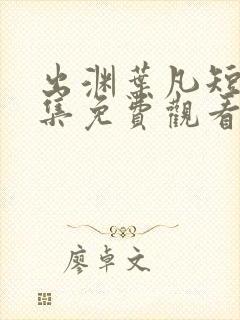 出渊葉凡短
集免費觀看
廖卓文